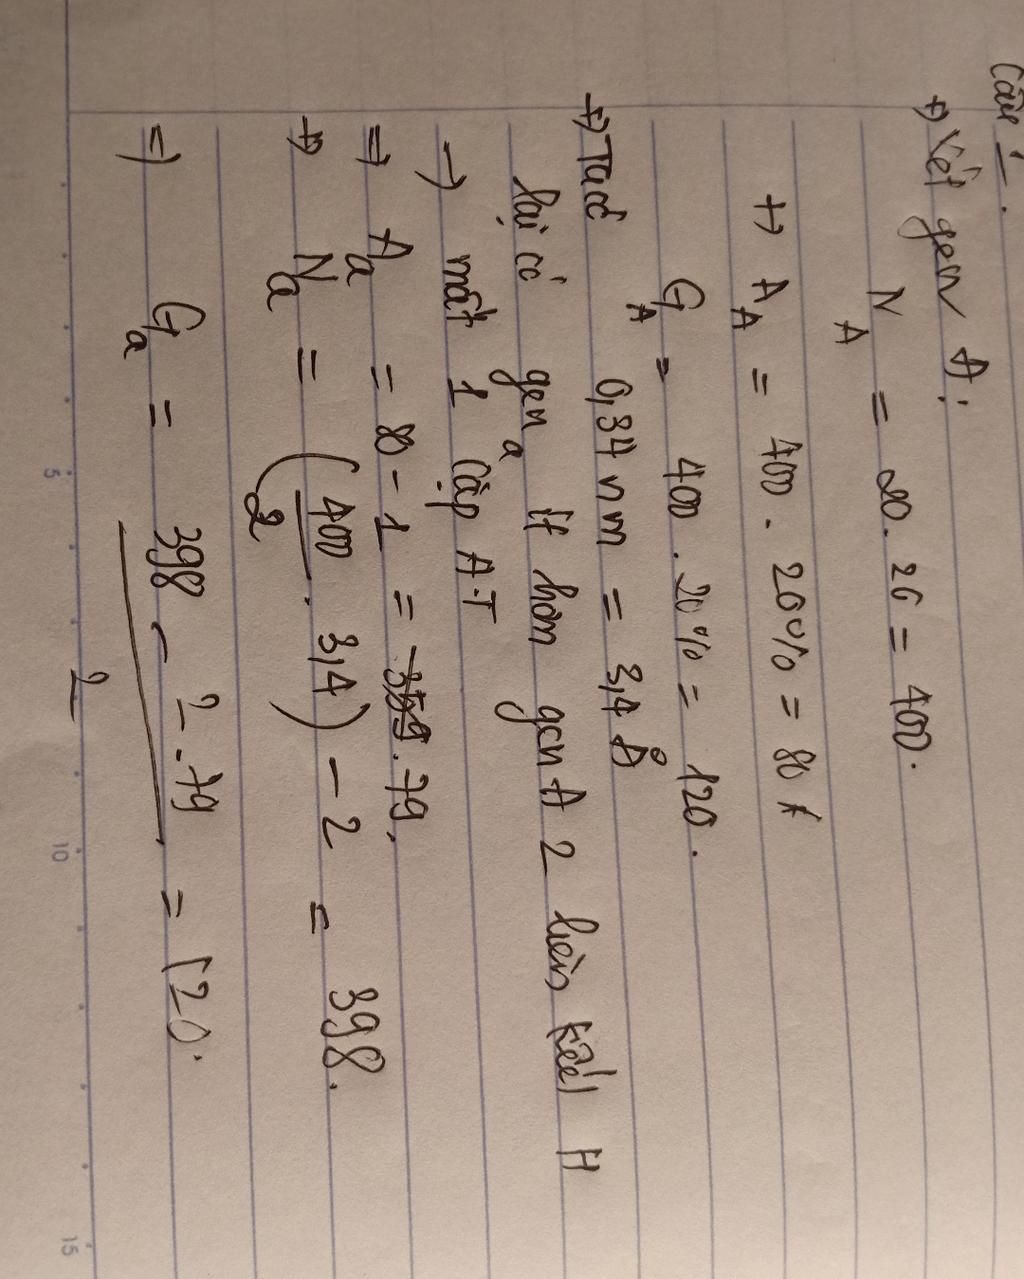 Câu 1.
+) Xét gen A:
N_A = 20.20 = 400.
+) A_A = 400 . 20% = 80
G_A = 400 . 20% = 120.
+) Ta có 0,34 nm = 3,4 Å
lại có gen a ít hơn gen A 2 liên kết H
→ mất 1 cặp A-T
=) A_a = 80 - 1 = 79.
+) N_a = (400/2 . 3,4) - 2 = 398.
=) G_a = (398 - 2.79)/2 = 120.
5 10 15